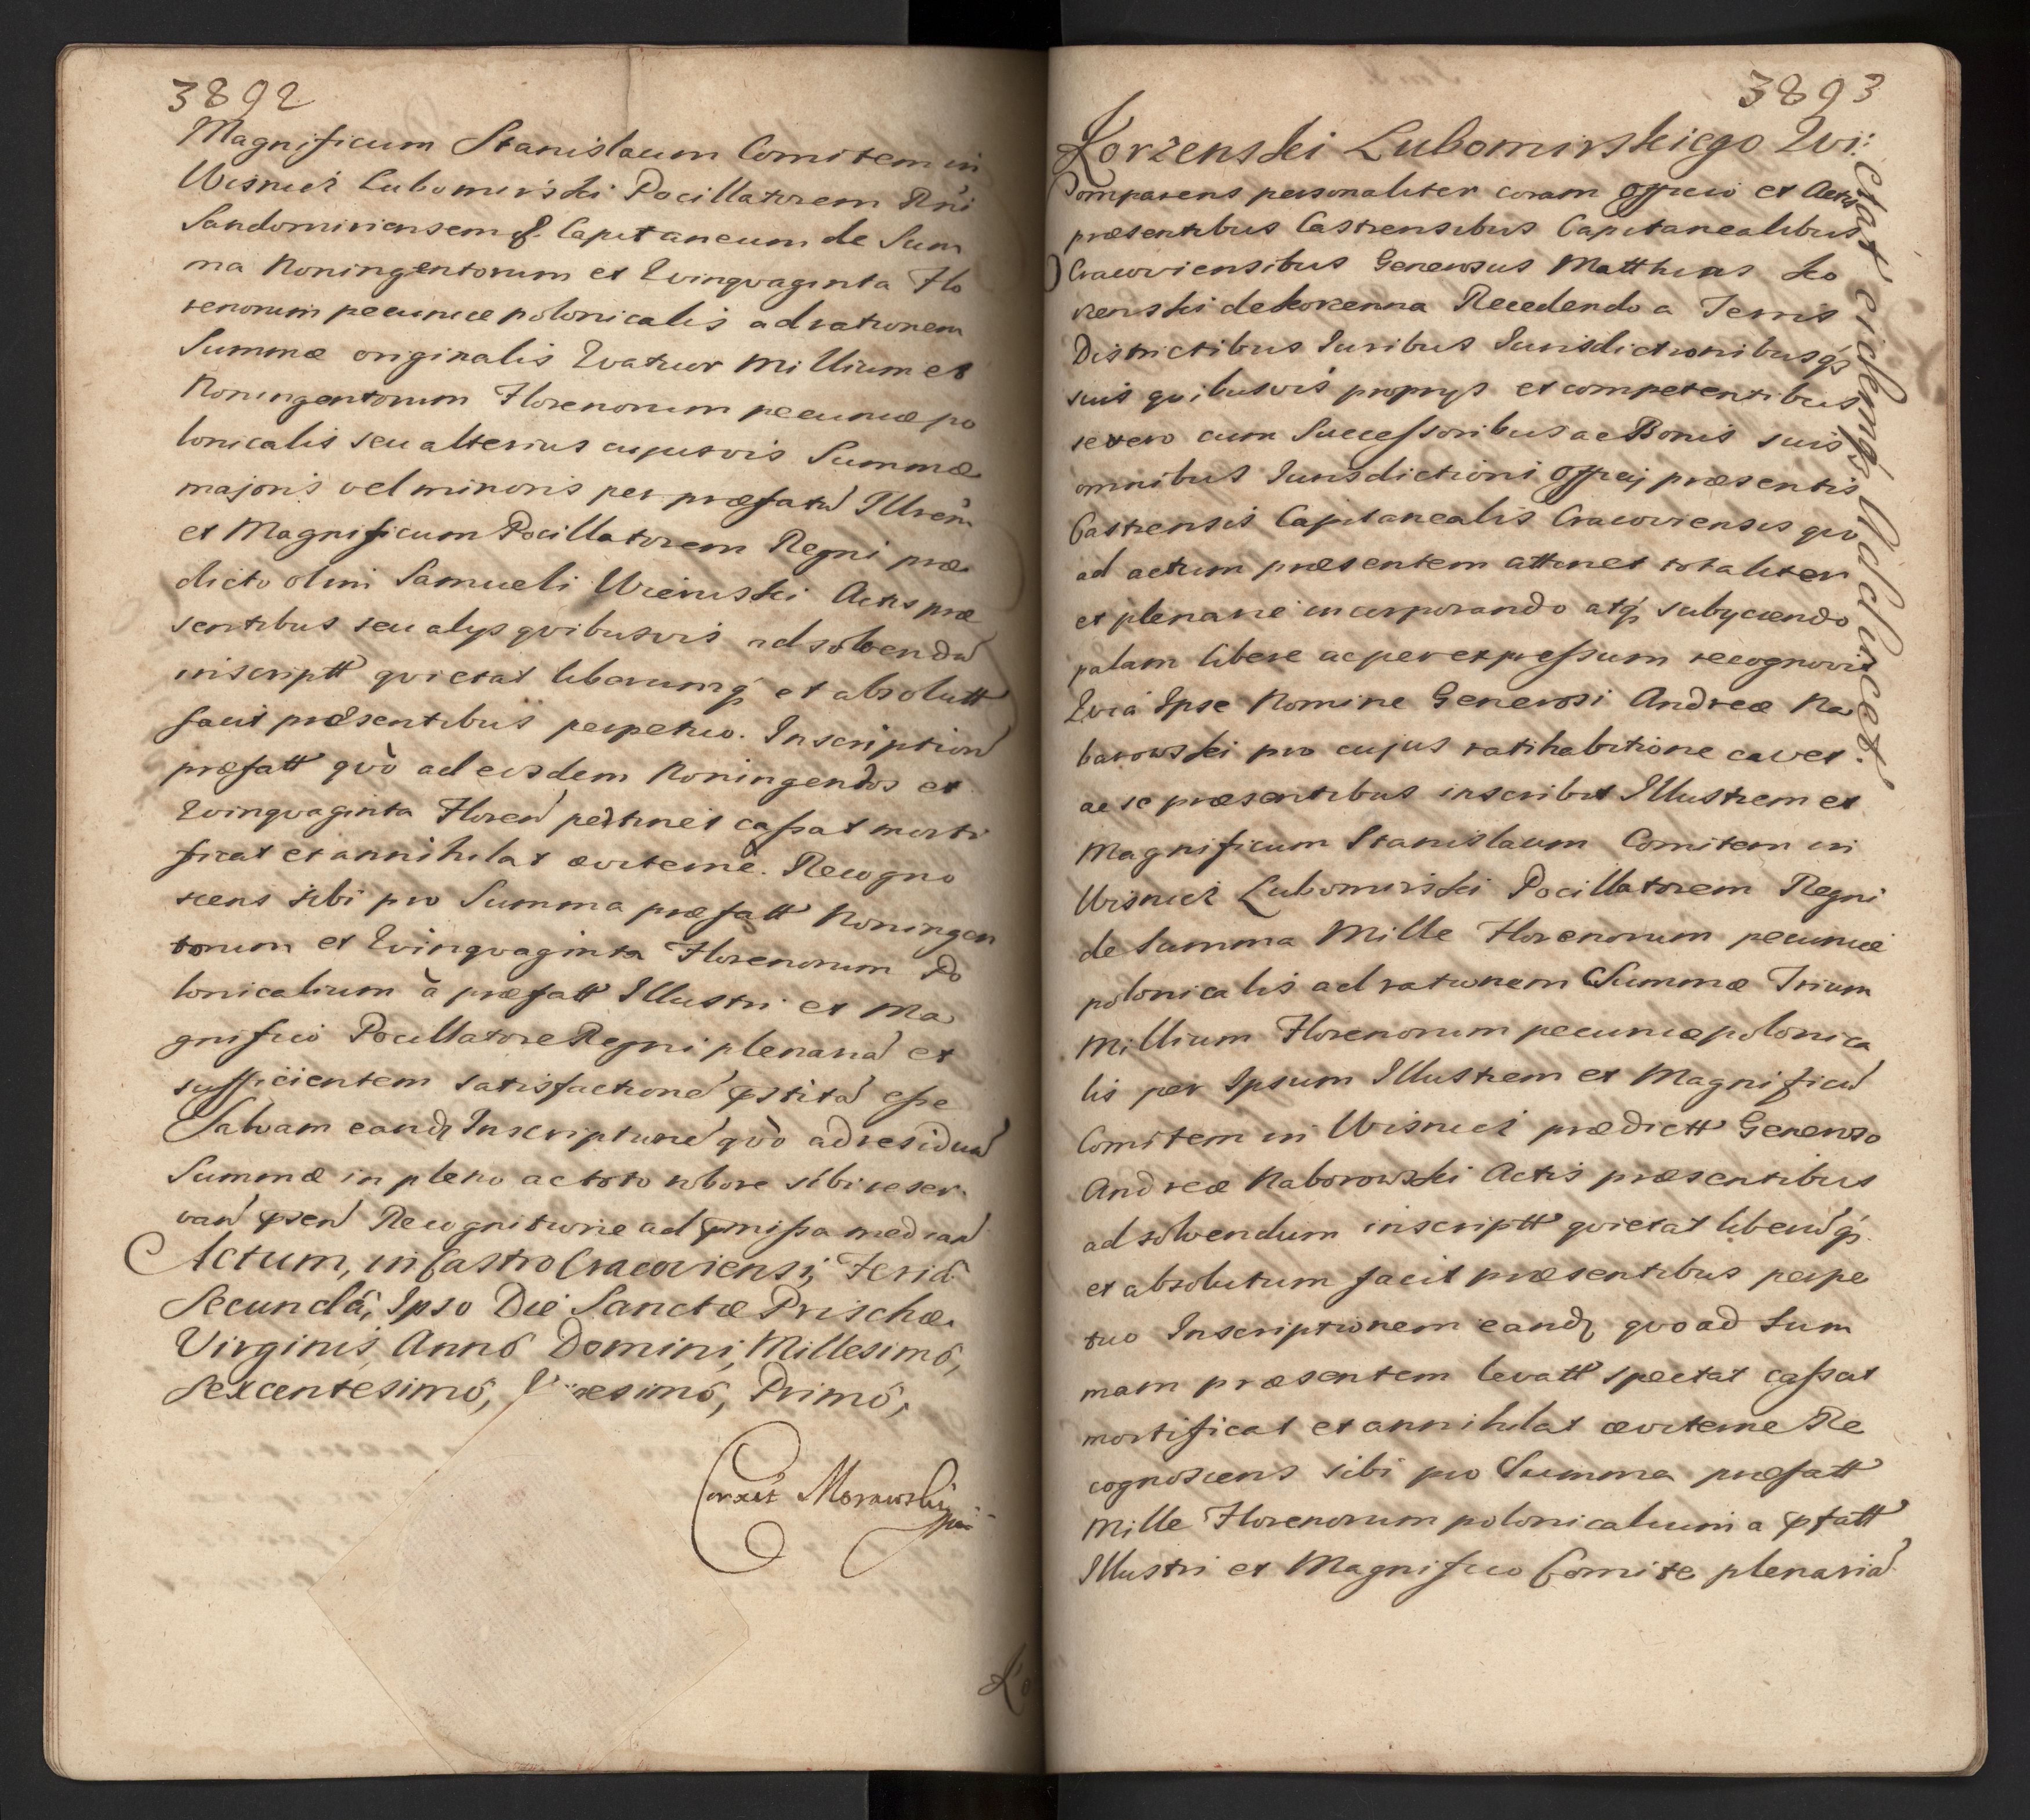 3892
Magnificum Stanislaum Comitem in
Wisnicz Lubomirski Pocillatorem Rni
Sandomiriensem &. Capitaneum de Sum
ma Noningentorum et Qvinqvaginta Flo
renorum pecuniæ polonicalis ad rationem
Summæ originalis Qvatuor Millium et
Noningentorum Florenorum pecuniæ po
lonicalis seu alterius cujusvis Summæ
majoris vel minoris per præfatu Illrem
et Magnificum Pocillatorem Regni præ
dicto olim Samueli Wieruski Actis præ
sentibus seu alys qvibusvis ad solvendu
inscriptt qvietat liberumq et absolutt
facit præsentibus perpetuo. Inscription
præfatt qvò ad eosdem Noningendos et
Qvinqvaginta Floren pertinet cassat morti
ficat et annihilat æviterne. Recogno
scens sibi pro Summa præfatt Noningen
torum et Qvinqvaginta Florenorum Po
lonicalium à præfatt Illustri et Ma
gnifico Pocillatore Regni plenaria et
sufficientem satisfactione pstita esse
Salvam eandq Inscriptione qvò ad residua
Summæ in pleno ac toto robore sibi reser
van psen Recognitione ad pmissa median
Actum, in Castro Cracoviensi, Feriâ
Secundâ, Ipso Die Sanctæ Prischæ
Virginis, Annô Domini, Millesimô,
Sexcentesimô, esimô, Primô,
Corexit Morawski
Ko
3893
Korzenski Lubomirskiego Qvi:
etat eidemq Adhæret.
Comparens personaliter coram Officio et Actis
præsentibus Castrensibus Capitanealibus
Cracoviensibus Generosus Matthias Ko
rzenski de Korzenna Recedendo a Terris
Districtibus Iuribus Iurisdictionibusq
suis qvibusvis proprys et competentibus
se vero cum Successoribus ac Bonis suis
omnibus Iurisdictioni Officij præsentis
Castrensis Capitanealis Cracoviensis qvo
ad actum præsentem attinet totaliter
et plenarie incorporando atq subyciendo
palam libere ac per expressum recognovit
Qvia Ipse Nomine Generosi Andreæ Na
borowski pro cujus ratihabitione cavet
ac se præsentibus inscribit Illustrem et
Magnificum Stanislaum Comitem in
Wisnicz Lubomirski Pocillatorem Regni
de Summa Mille Florenorum pecuniæ
polonicalis ad rationem Summæ Trium
Millium Florenorum pecuniæ polonica
lis per Ipsum Illustrem et Magnificu
Comitem in Wisnicz prædictt Generoso
Andreæ Naborowski Actis præsentibus
ad solvendum inscriptt qvietat liberuq
et absolutum facit præsentibus perpe
tuo Inscriptionem eandq qvoad Sum
mam præsentem levatt spectat cassat
mortificat et annihilat æviterne Re
cognoscens sibi pro Summa præfatt
Mille Florenorum polonicalium a pfatt
Illustri et Magnifico Comite plenaria